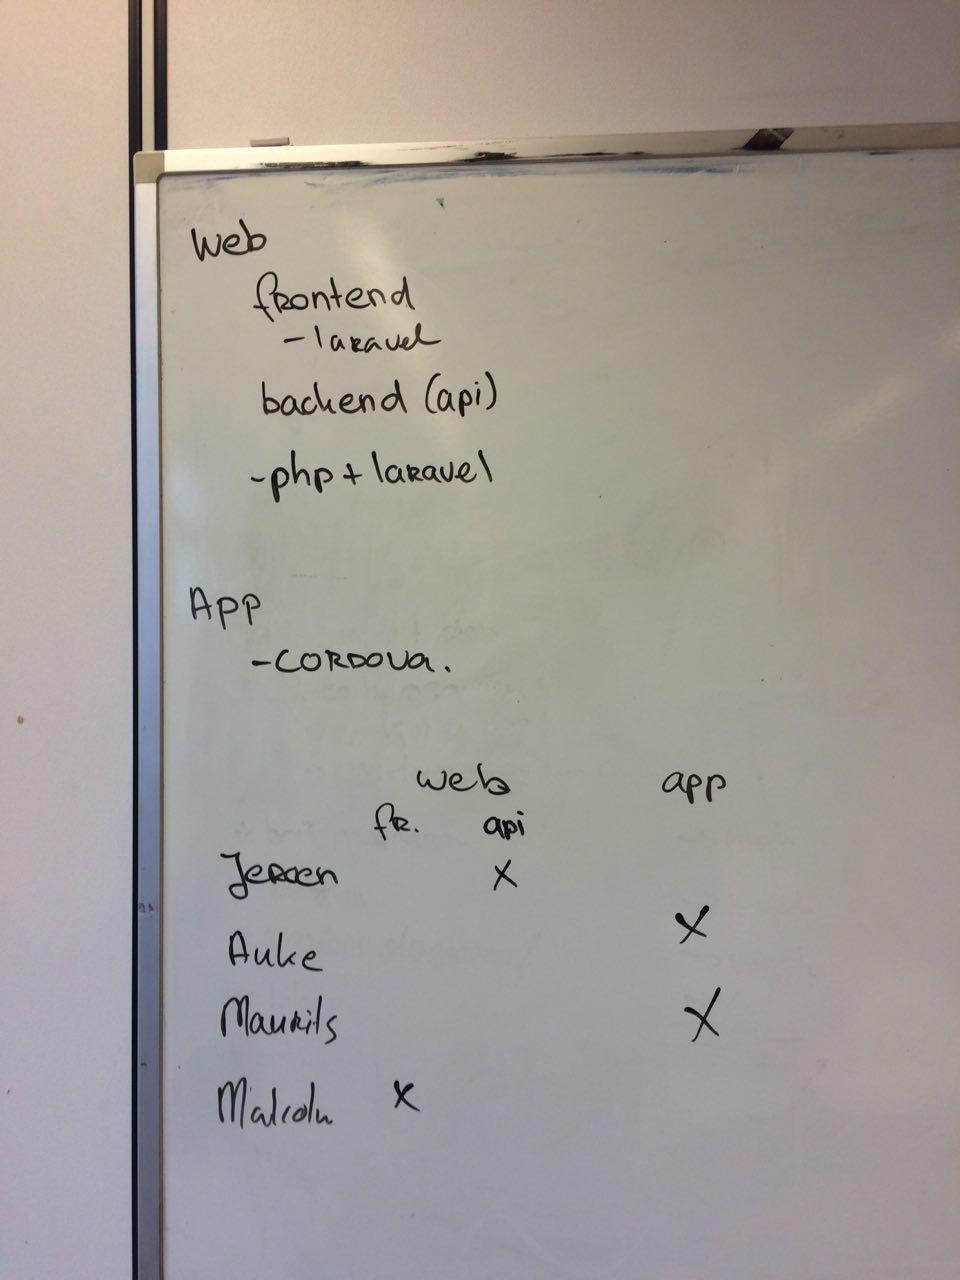 Web
frontend
- laravel
backend (api)
- php + laravel
App
- CORDOVA.
web app
fR. api
Jeroen X
Auke X
Maurits X
Malcolm X